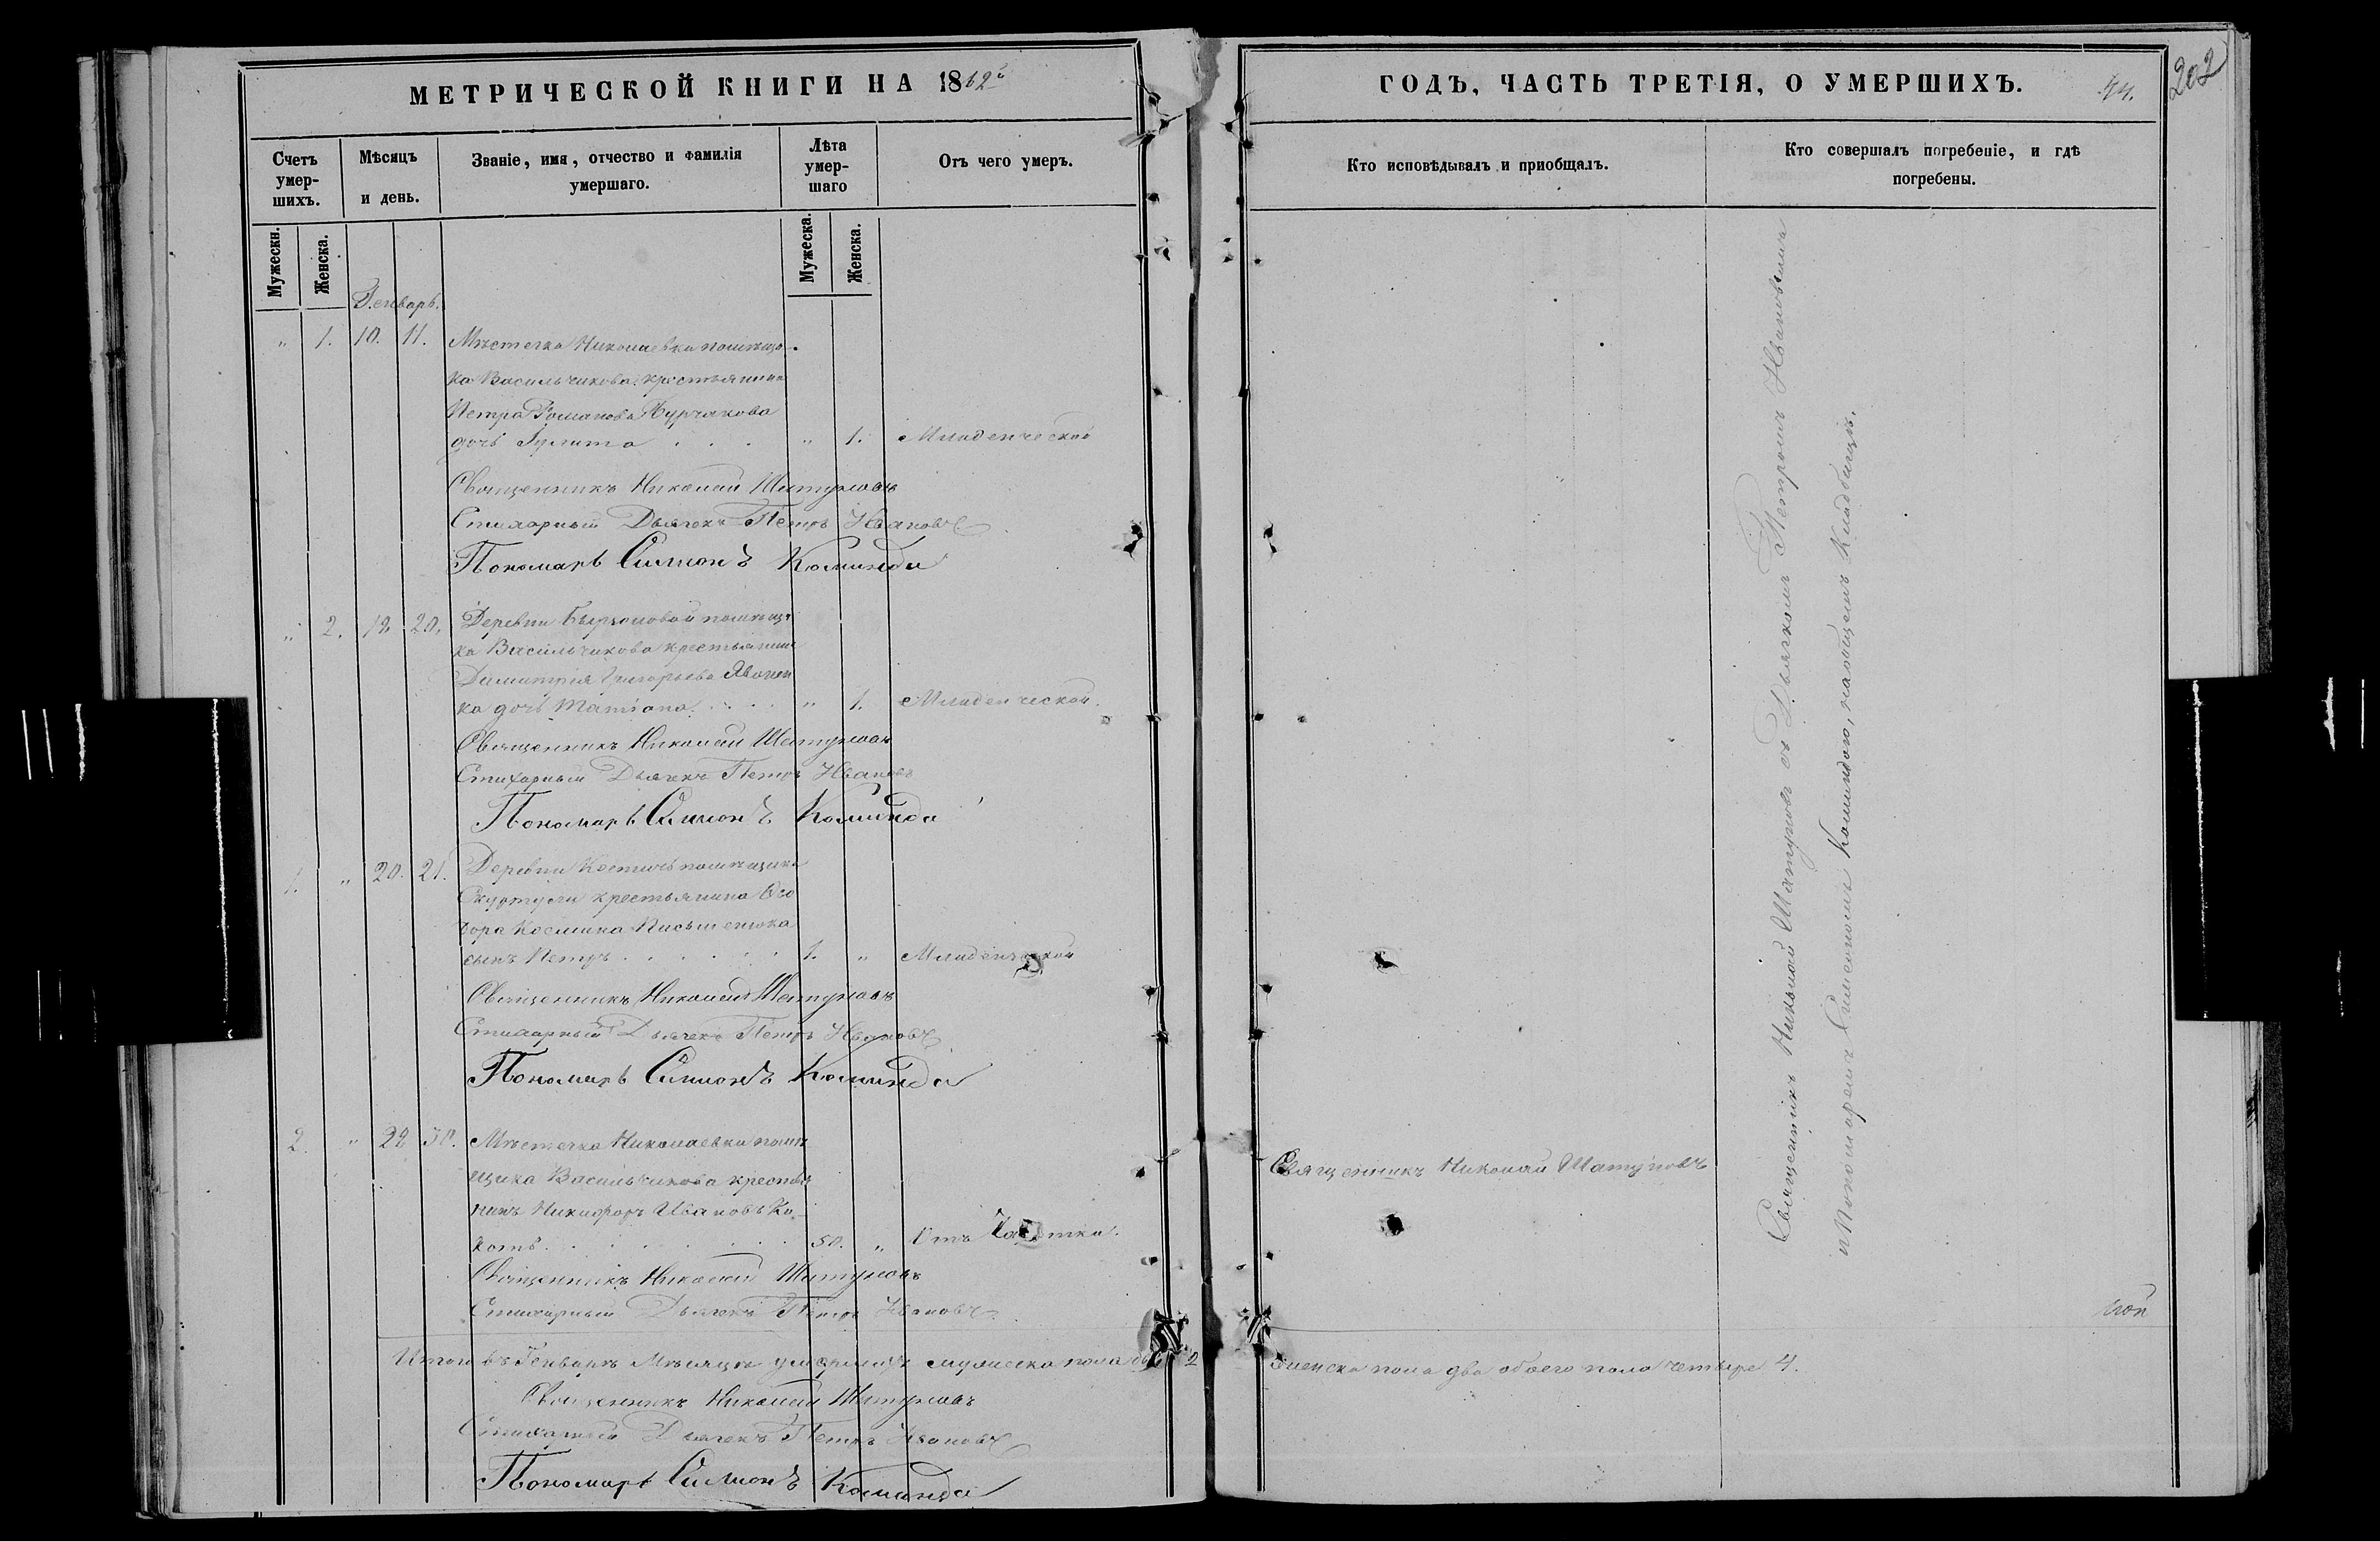 МЕТРИЧЕСКОЙ КНИГИ НА 1862
ГОДЪ, ЧАСТЬ ТРЕТІЯ, О УМЕРШИХЪ.
202
Счетъ умер-шихъ.
Мѣсяцъ и день.
Званіе, имя, отчество и фамилія умершаго.
Лѣта умер-шаго
Отъ чего умеръ.
Кто исповѣдывалъ и приобщалъ.
Кто совершалъ погребеніе, и гдѣ погребены.
Мужескн.
Женска.
Мужеска.
Женска.
Генварь.
" 1. 10. 11. Мѣстечка Николаевки помѣщи
ка Васильчикова крестьянина
Петра Романова
дочь " 1. Младенческой
Священникъ Николай Шатуновъ
Стихарный Дьячекъ Петръ Ивановъ
Пономарь Симионъ Команда
" 2. 19. 20. Деревни помѣщи
ка Васильчикова крестьянина
Димитрія Григорьева
ка дочь Татіана " 1. Младенческой.
Священникъ Николай Шатуновъ
Стихарный Дьячекъ Петръ Ивановъ
Пономарь Симионъ Команда
1. " 20. 21. Деревни Костичъ помѣщика
крестьянина Ѳео
дора Космина Письменюка
сынъ Петръ 1. " Младенческой
Священникъ Николай Шатуновъ
Стихарный Дьячекъ Петръ Ивановъ
Пономарь Симионъ Команда
2. " 30. Мѣстечка Николаевки помѣ
щика Васильчикова крестья
нинъ Никифоръ Ивановъ Ко
50. " Отъ Чахотки.
Священникъ Николай Шатуновъ
Священникъ Николай Шатуновъ
Стихарный Дьячекъ Петръ Ивановъ
Священникъ Николай Шатуновъ съ Дьячкомъ Петромъ Ивановымъ
и Пономаремъ Симеономъ Командою, на общемъ Кладбищѣ.
Итого въ Генварѣ Мѣсяцѣ умершихъ мужеска пола 2 женска пола два обоего пола четыре 4.
Священникъ Николай Шатуновъ
Стихарный Дьячекъ Петръ Ивановъ
Пономарь Симионъ Команда